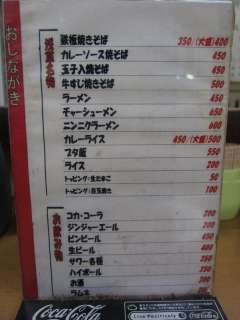 おしながき
鉄板焼きそば 350/(大盛)400
カレーソース焼そば 450
玉子入焼そば 450
牛すじ焼そば 500
ラーメン 450
チャーシューメン 650
ニンニクラーメン 600
カレーライス 450/(大盛)500
ブタ飯 550
ライス 200
トッピング・生たまご 50
トッピング・目玉焼き 100
お飲み物
コカ・コーラ 200
ジンジャーエール 200
ビンビール
生ビール 400
サワー各種
ハイボール 350
お酒
ラムネ
Coca-Cola
Live Positively